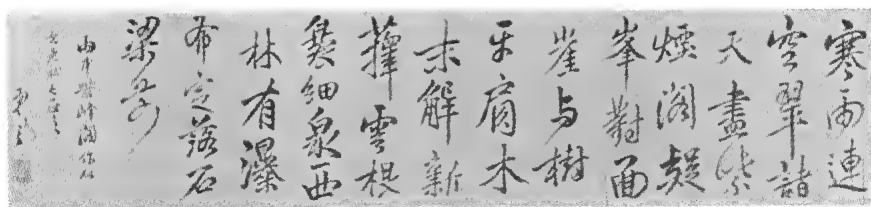 寒雨連
空翠諸
天盡紫
煙閣疑
峯對面
崖与樹
平肩木
末解新
蘀雲根
發細泉西
林有瀑
布定落石
梁前
山中